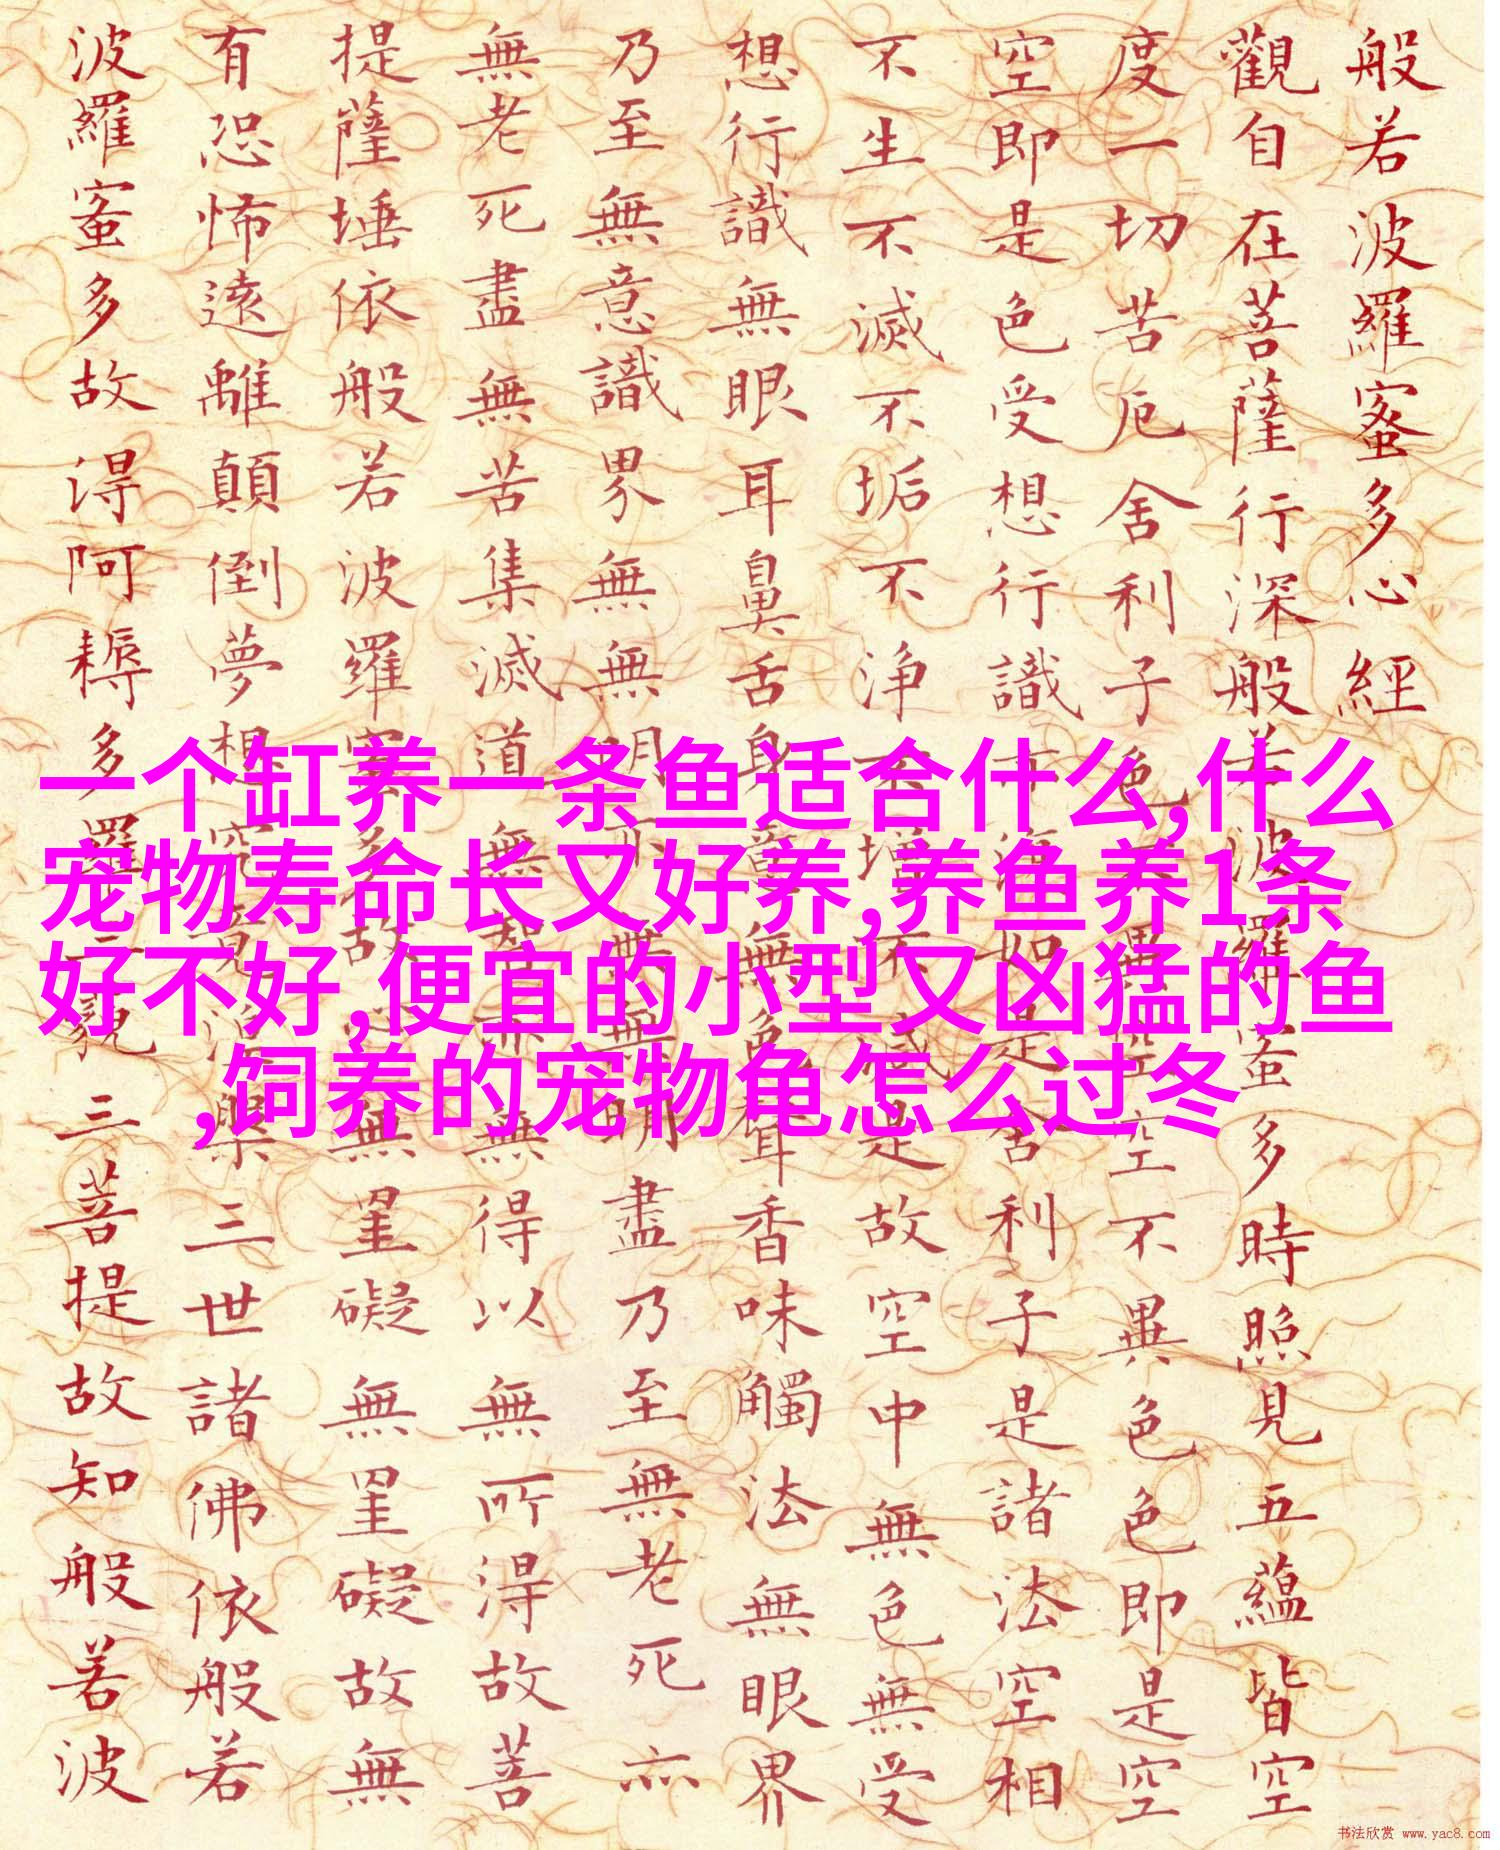 般若波羅蜜多心經
觀自在菩薩行深般若波羅蜜多時照見五蘊皆空
度一切苦厄舍利子色不異空空不異色色即是空
空即是色受想行識如是舍利子是諸法空相
不生不滅不垢不淨不增不減是故空中無色無受
想行識無眼耳鼻舌身意無色聲香味觸法無眼界
乃至無意識界無無明亦無無明盡乃至無老死亦
無老死盡無苦集滅道無智亦無得以無所得故菩
提薩埵依般若波羅蜜多故心無罣礙無罣礙故無
有恐怖遠離顛倒夢想究竟涅槃三世諸佛依般若
波羅蜜多故得阿耨多羅三藐三菩提故知般若波
一个缸养一条鱼适合什么,什么
宠物寿命长又好养,养鱼养1条
好不好,便宜的小型又凶猛的鱼
,饲养的宠物龟怎么过冬
书法欣赏 www.yac8.com